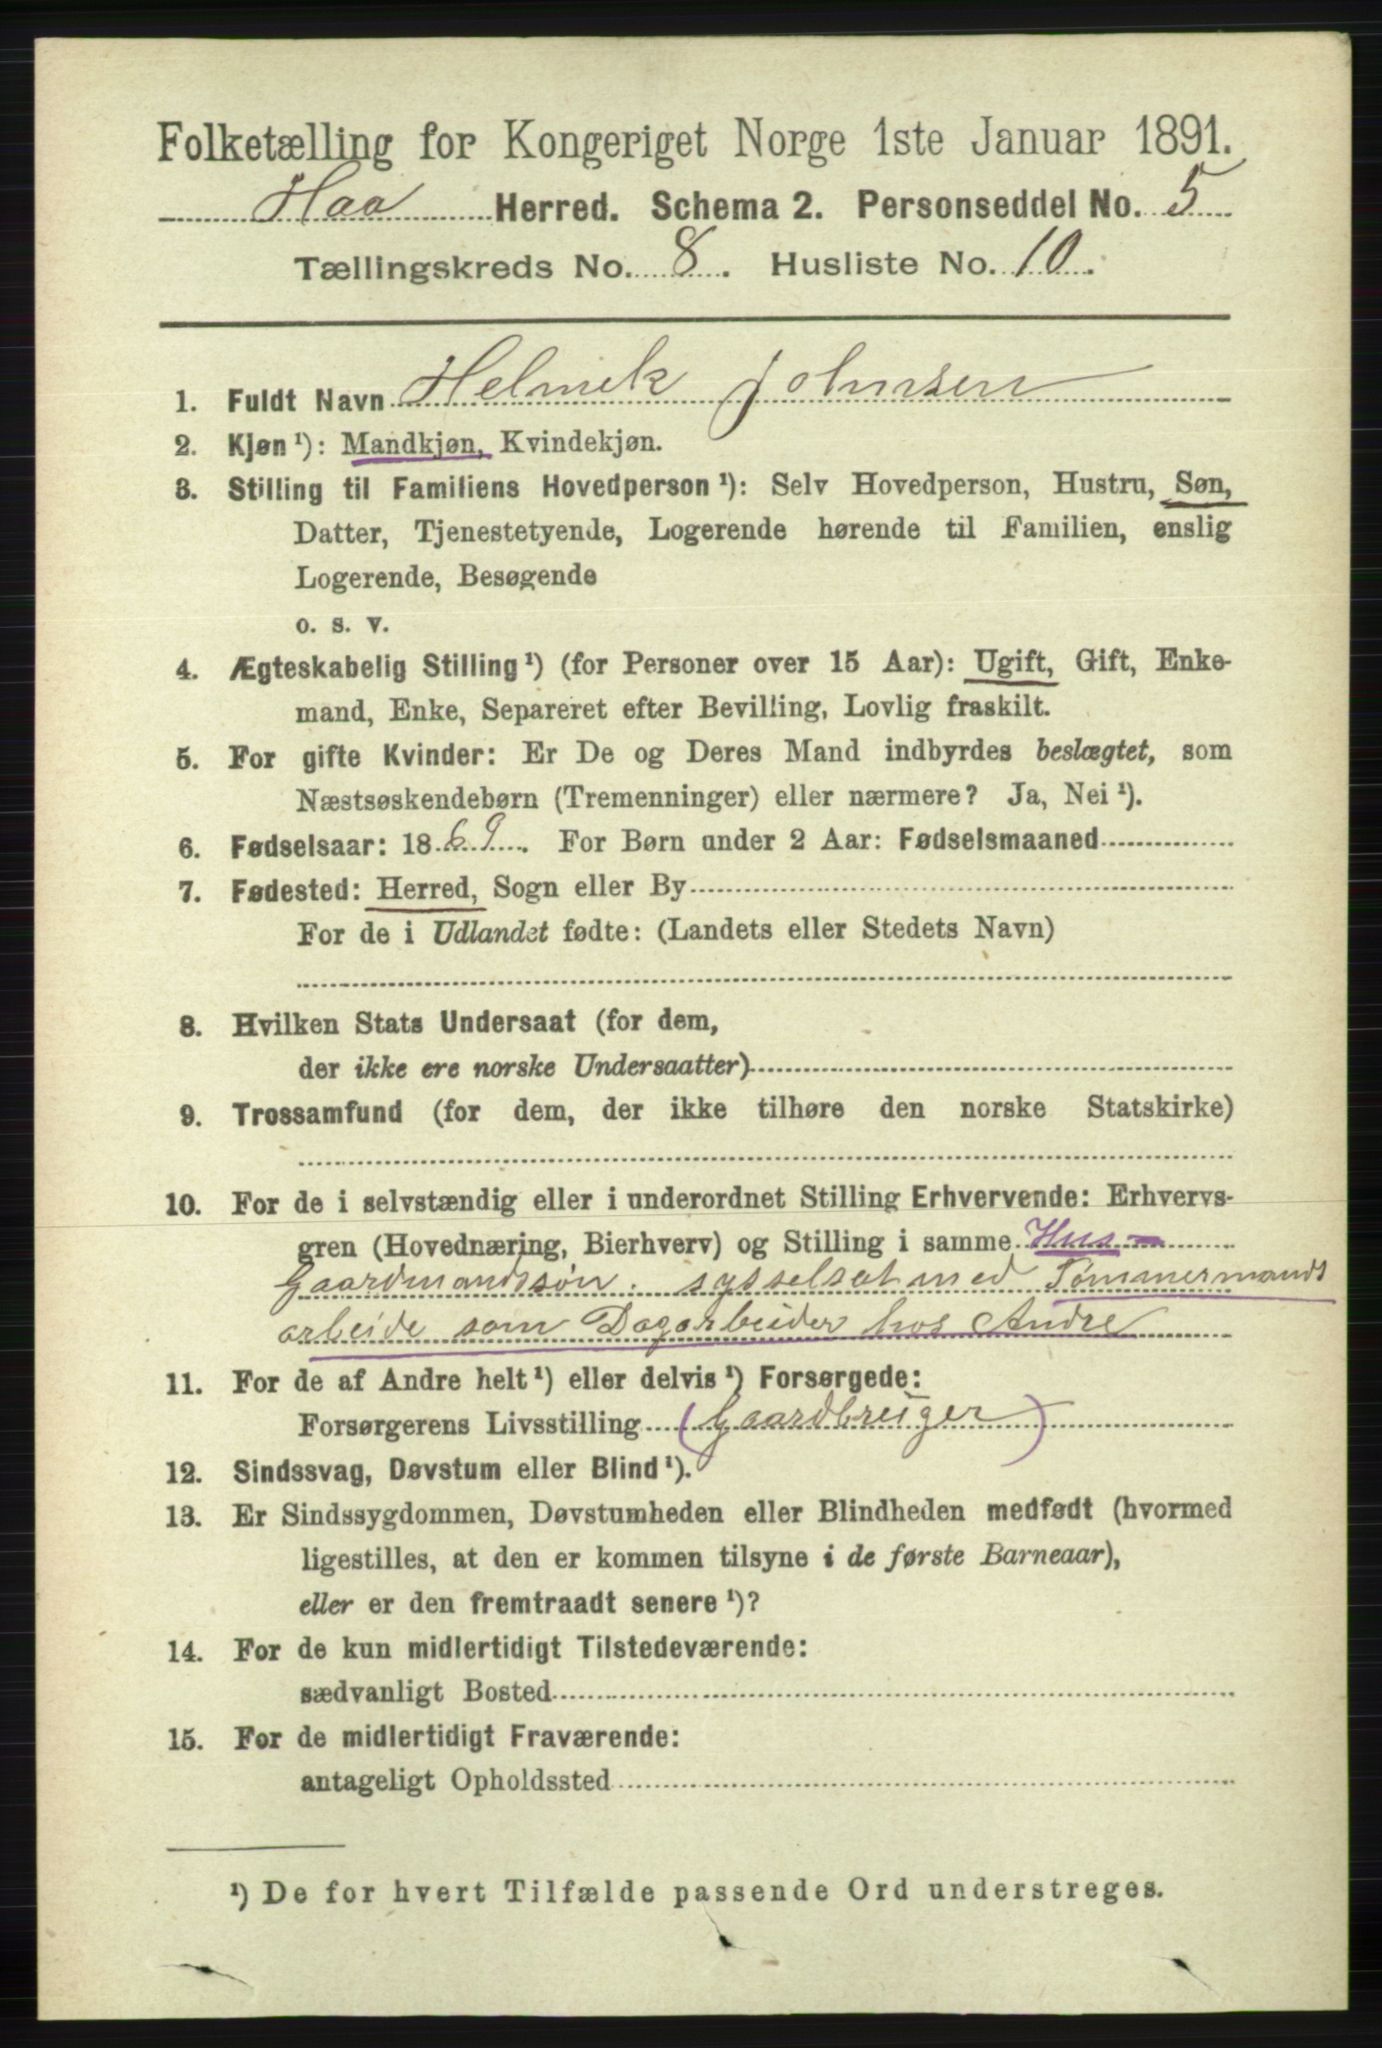 Folketælling for Kongeriget Norge 1ste Januar 1891.
Haa Herred. Schema 2. Personseddel No. 5
Tællingskreds No. 8. Husliste No. 10.
1. Fuldt Navn Helmik Johnsen
2. Kjøn ¹): Mandkjøn, Kvindekjøn.
3. Stilling til Familiens Hovedperson ¹): Selv Hovedperson, Hustru, Søn,
Datter, Tjenestetyende, Logerende hørende til Familien, enslig
Logerende, Besøgende
o. s. v.
4. Ægteskabelig Stilling ¹) (for Personer over 15 Aar): Ugift, Gift, Enke-
mand, Enke, Separeret efter Bevilling, Lovlig fraskilt.
5. For gifte Kvinder: Er De og Deres Mand indbyrdes beslægtet, som
Næstsøskendebørn (Tremenninger) eller nærmere? Ja, Nei ¹).
6. Fødselsaar: 1869. For Børn under 2 Aar: Fødselsmaaned
7. Fødested: Herred, Sogn eller By
For de i Udlandet fødte: (Landets eller Stedets Navn)
8. Hvilken Stats Undersaat (for dem,
der ikke ere norske Undersaatter)
9. Trossamfund (for dem, der ikke tilhøre den norske Statskirke)
10. For de i selvstændig eller i underordnet Stilling Erhvervende: Erhvervs-
gren (Hovednæring, Bierhverv) og Stilling i samme Hus-
Gaardmandssøn. sysselsat med Tømmermands
arbeide som Dagarbeider hos Andre
11. For de af Andre helt ¹) eller delvis ¹) Forsørgede:
Forsørgerens Livsstilling (Gaardbruger)
12. Sindssvag, Døvstum eller Blind ¹).
13. Er Sindssygdommen, Døvstumheden eller Blindheden medfødt (hvormed
ligestilles, at den er kommen tilsyne i de første Barneaar),
eller er den fremtraadt senere ¹)?
14. For de kun midlertidigt Tilstedeværende:
sædvanligt Bosted
15. For de midlertidigt Fraværende:
antageligt Opholdssted
¹) De for hvert Tilfælde passende Ord understreges.